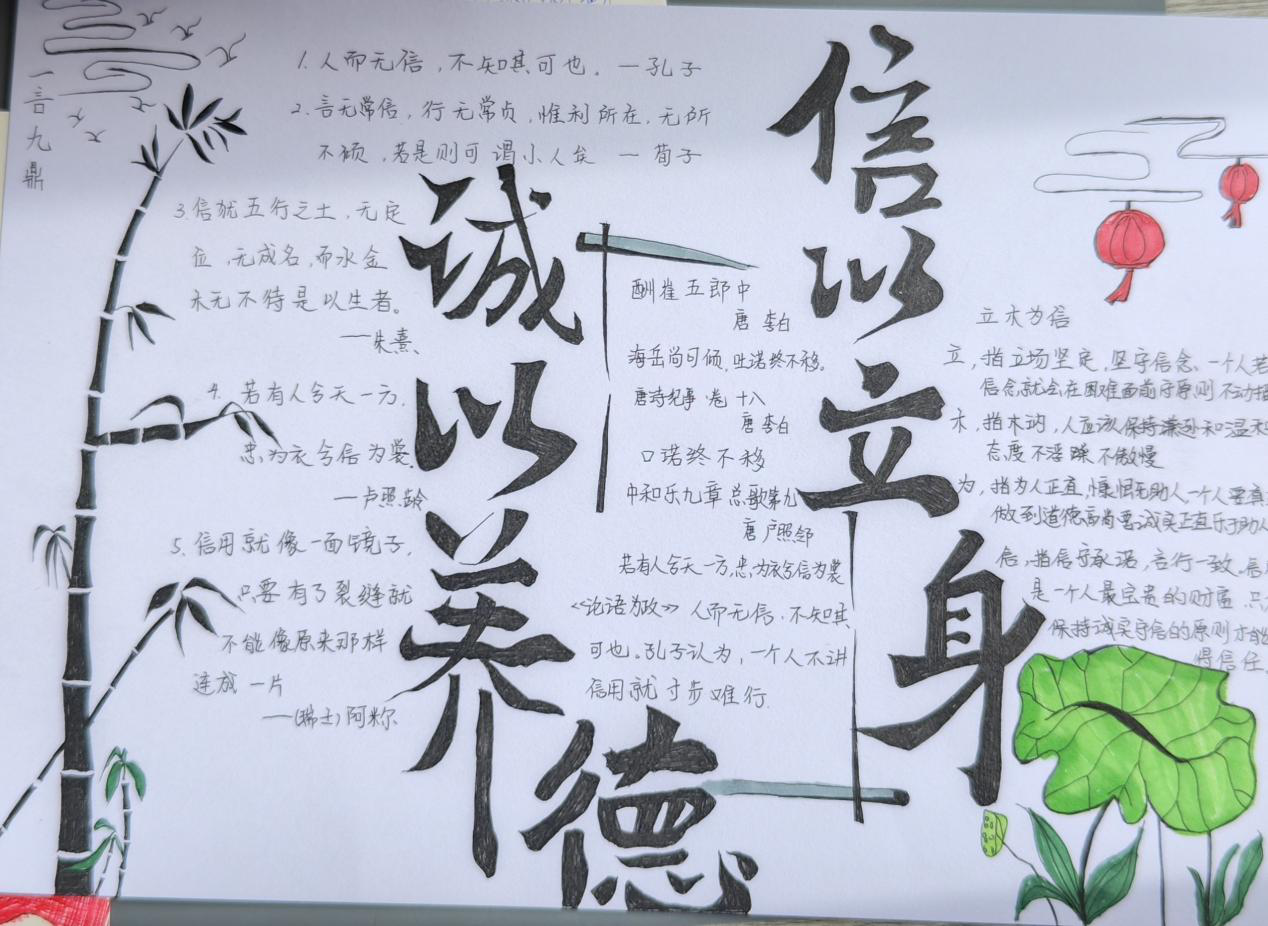 一言九鼎
1. 人而无信，不知其可也。—孔子
2. 言无常信，行无常贞，惟利所在，无所
不倾，若是则可谓小人矣 — 荀子
3. 信犹五行之土，无定
位，无成名，而水金
木无不待是以生者。
——朱熹、
4. 若有人兮天一方，
忠为衣兮信为裳。
—卢照龄
5. 信用就像一面镜子，
只要有了裂缝就
不能像原来那样
连成一片
——(瑞士)阿米尔
诚以养德
酬崔五郎中
唐 李白
海岳尚可倾，吐诺终不移。
唐诗纪事·卷十八
唐 李白
口诺终不移
中和乐九章 总歌第九
唐 卢照邻
若有人兮天一方，忠为衣兮信为裳
《论语为政》 人而无信，不知其
可也。孔子认为，一个人不讲
信用就寸步难行.
信以立身
立木为信
立，指立场坚定，坚守信念、一个人若
信念就会在困难面前守原则 不动摇
木，指木讷，人应该保持谦逊和温和
态度不浮躁不傲慢
为，指为人正直，慷慨无助人一个人要真
做到道德高尚要诚实正直乐于助人
信，指信守承诺，言行一致。信
是一个人最宝贵的财富 只
保持诚实守信的原则才能
得信任